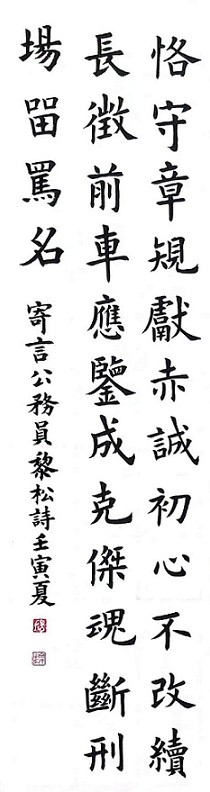 恪守章規獻赤誠初心不改續
長徵前車應鑒成克傑魂斷刑
場留罵名
寄言公務員黎松詩壬寅夏